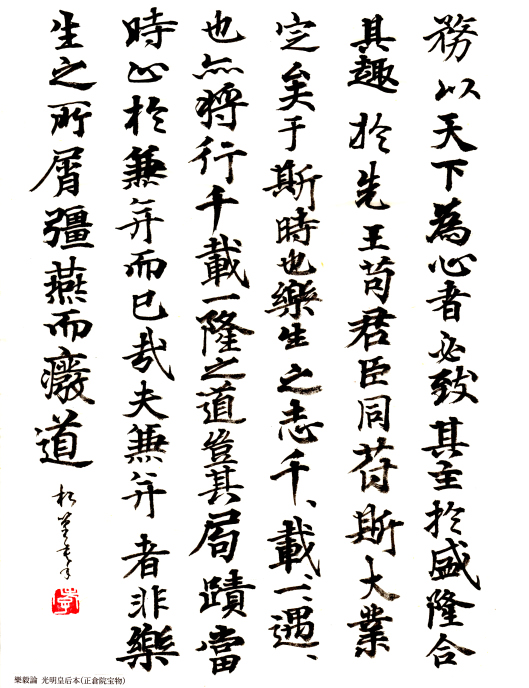 務以天下為心者必致其主於盛隆合
其趣於先王苟君臣同苻斯大業
定矣于斯時也樂生之志千、載一、遇、
也亦將行千載一隆之道豈其局蹟當
時止於兼并而已哉夫兼并者非樂
生之所屑彊燕而癈道
樂毅論 光明皇后本(正倉院宝物)